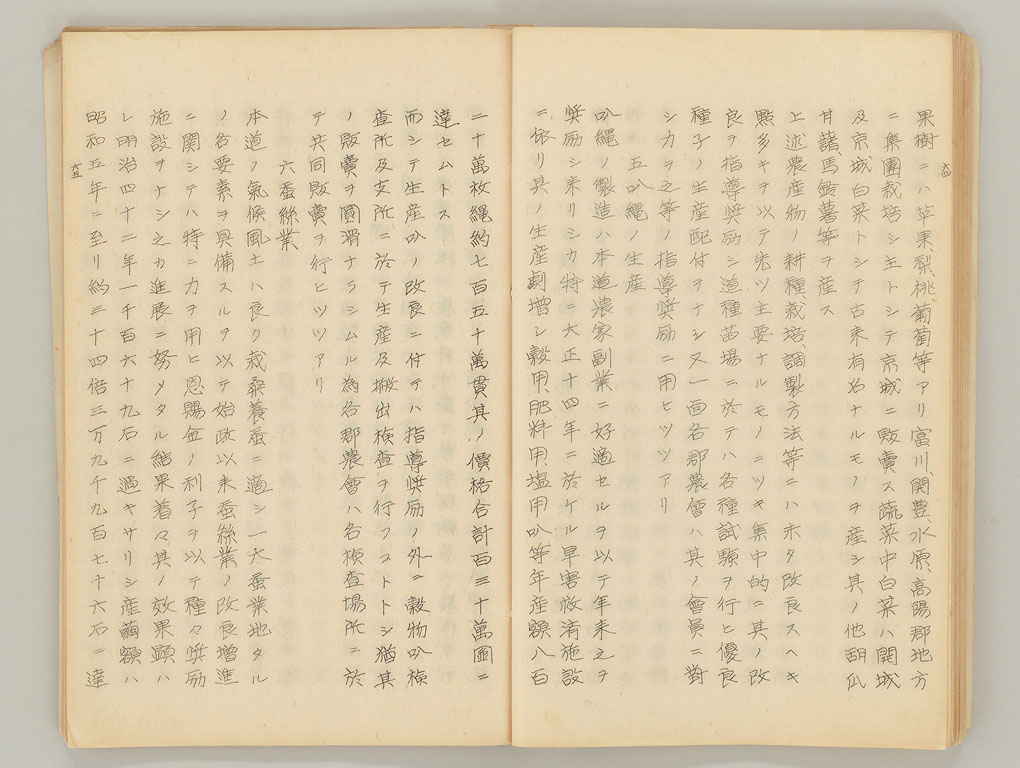 六四
果樹ニハ苹果、梨、桃、葡萄等アリ富川、開豊、水原、高陽郡地方
ニ集團栽培シ主トシテ京城ニ販賣ス蔬菜中白菜ハ開城
及京城白菜トシテ古来有名ナルモノヲ産シ其ノ他胡瓜
甘藷馬鈴薯等ヲ産ス
上述農産物ノ耕種、栽培、調製方法等ニハ未タ改良スヘキ
點多キヲ以テ先ツ主要ナルモノニツキ集中的ニ其ノ改
良ヲ指導奨励シ道種苗場ニ於テハ各種試験ヲ行ヒ優良
種子ノ生産配付ヲナシ又一面各郡農會ハ其ノ會員ニ對
シカヲ之等ノ指導奨励ニ用ヒツツアリ
五 叺縄ノ生産
叺縄ノ製造ハ本道農家副業ニ好適セルヲ以テ年来之ヲ
奨励シ来リシカ特ニ大正十四年ニ於ケル旱害救濟施設
ニ依リ其ノ生産劇増シ穀用、肥料用、塩用叺等年産額八百
二十萬枚縄約七百五十萬貫其ノ價格合計百三十萬圓ニ
達セムトス
而シテ生産叺ノ改良ニ付テハ指導奨励ノ外ニ穀物叺検
査所及支所ニ於テ生産及搬出検査ヲ行フコトトシ猶其
ノ販賣ヲ圓滑ナラシムル為各郡農會ハ各検査場所ニ於
テ共同販賣ヲ行ヒツツアリ
六 蚕絲業
本道ノ氣候風土ハ良ク栽桑養蚕ニ適シ一大蚕業地タル
ノ各要素ヲ具備スルヲ以テ始政以来蚕絲業ノ改良増進
ニ關シテハ特ニ力ヲ用ヒ恩賜金ノ利子ヲ以テ種々奨励
施設ヲナシ之カ進展ニ努メタル結果着々其ノ効果顕ハ
レ明治四十二年一千百六十九石ニ過キサリシ産繭額ハ
昭和五年ニ至リ約三十四倍三万九千九百七十六石ニ達
六五